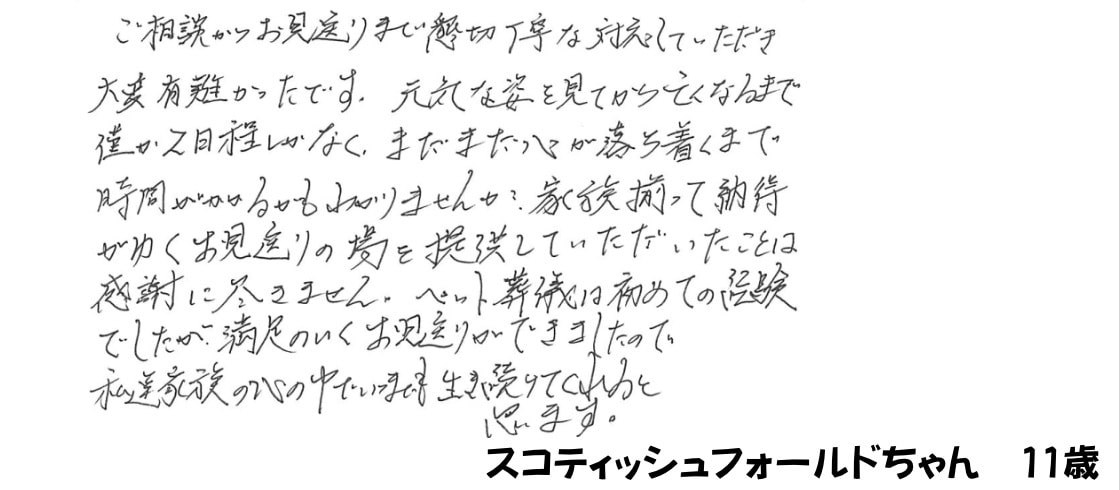 ご相談からお見送りまで懇切丁寧な対応をしていただき
大変有難かったです。元気な姿を見てから亡くなるまで
僅か2日程しかなく、まだまだ心が落ち着くまで
時間がかかるかもわかりませんが、家族揃って納得
がゆくお見送りの場を提供していただいたことは
感謝に尽きません。ペット葬儀は初めての経験
でしたが、満足のいくお見送りができましたので
私達家族の心の中でいつまでも生き続けてくれると
思います。
スコティッシュフォールドちゃん 11歳